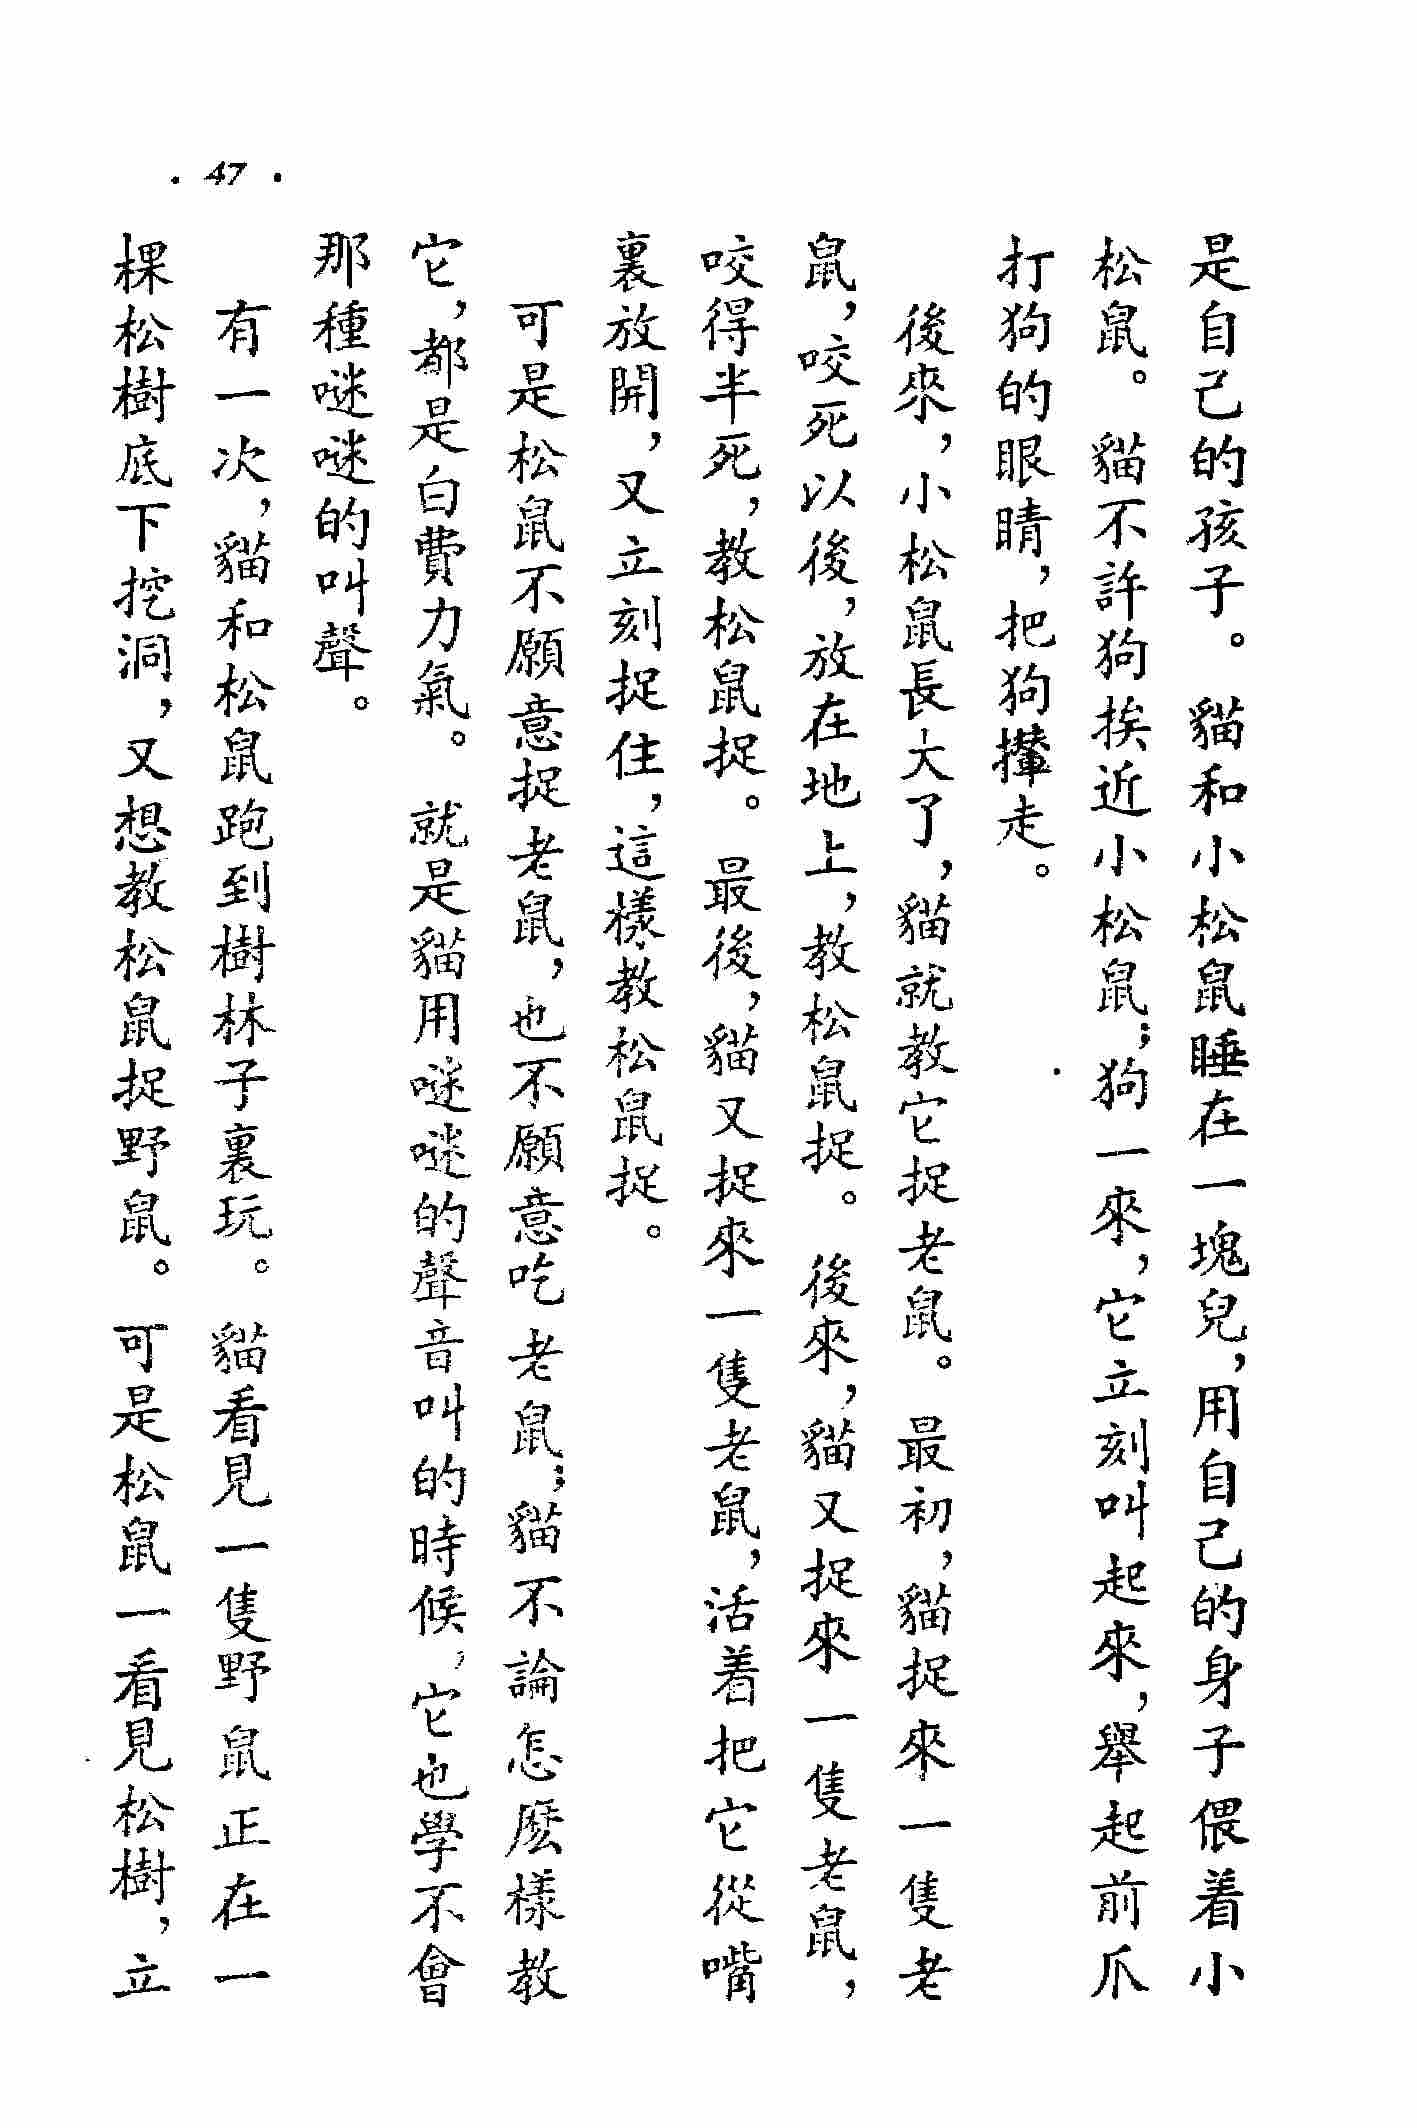 是自己的孩子。貓和小松鼠睡在一塊兒，用自己的身子偎着小
松鼠。貓不許狗挨近小松鼠；狗一來，它立刻叫起來，舉起前爪
打狗的眼睛，把狗攆走。
後來，小松鼠長大了，貓就教它捉老鼠。最初，貓捉來一隻老
鼠，咬死以後，放在地上，教松鼠捉。後來，貓又捉來一隻老鼠，
咬得半死，教松鼠捉。最後，貓又捉來一隻老鼠，活着把它從嘴
裏放開，又立刻捉住，這樣教松鼠捉。
可是松鼠不願意捉老鼠，也不願意吃老鼠；貓不論怎麽樣教
它，都是白費力氣。就是貓用咪咪的聲音叫的時候，它也學不會
那種咪咪的叫聲。
有一次，貓和松鼠跑到樹林子裏玩。貓看見一隻野鼠正在一
棵松樹底下挖洞，又想教松鼠捉野鼠。可是松鼠一看見松樹，立
· 47 ·